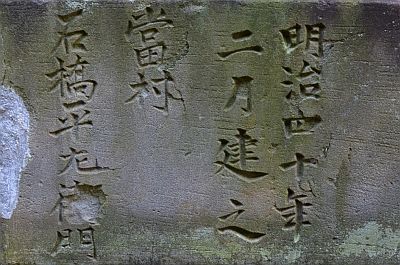 明治四十年
二月建之
當村
石橋平左衛門